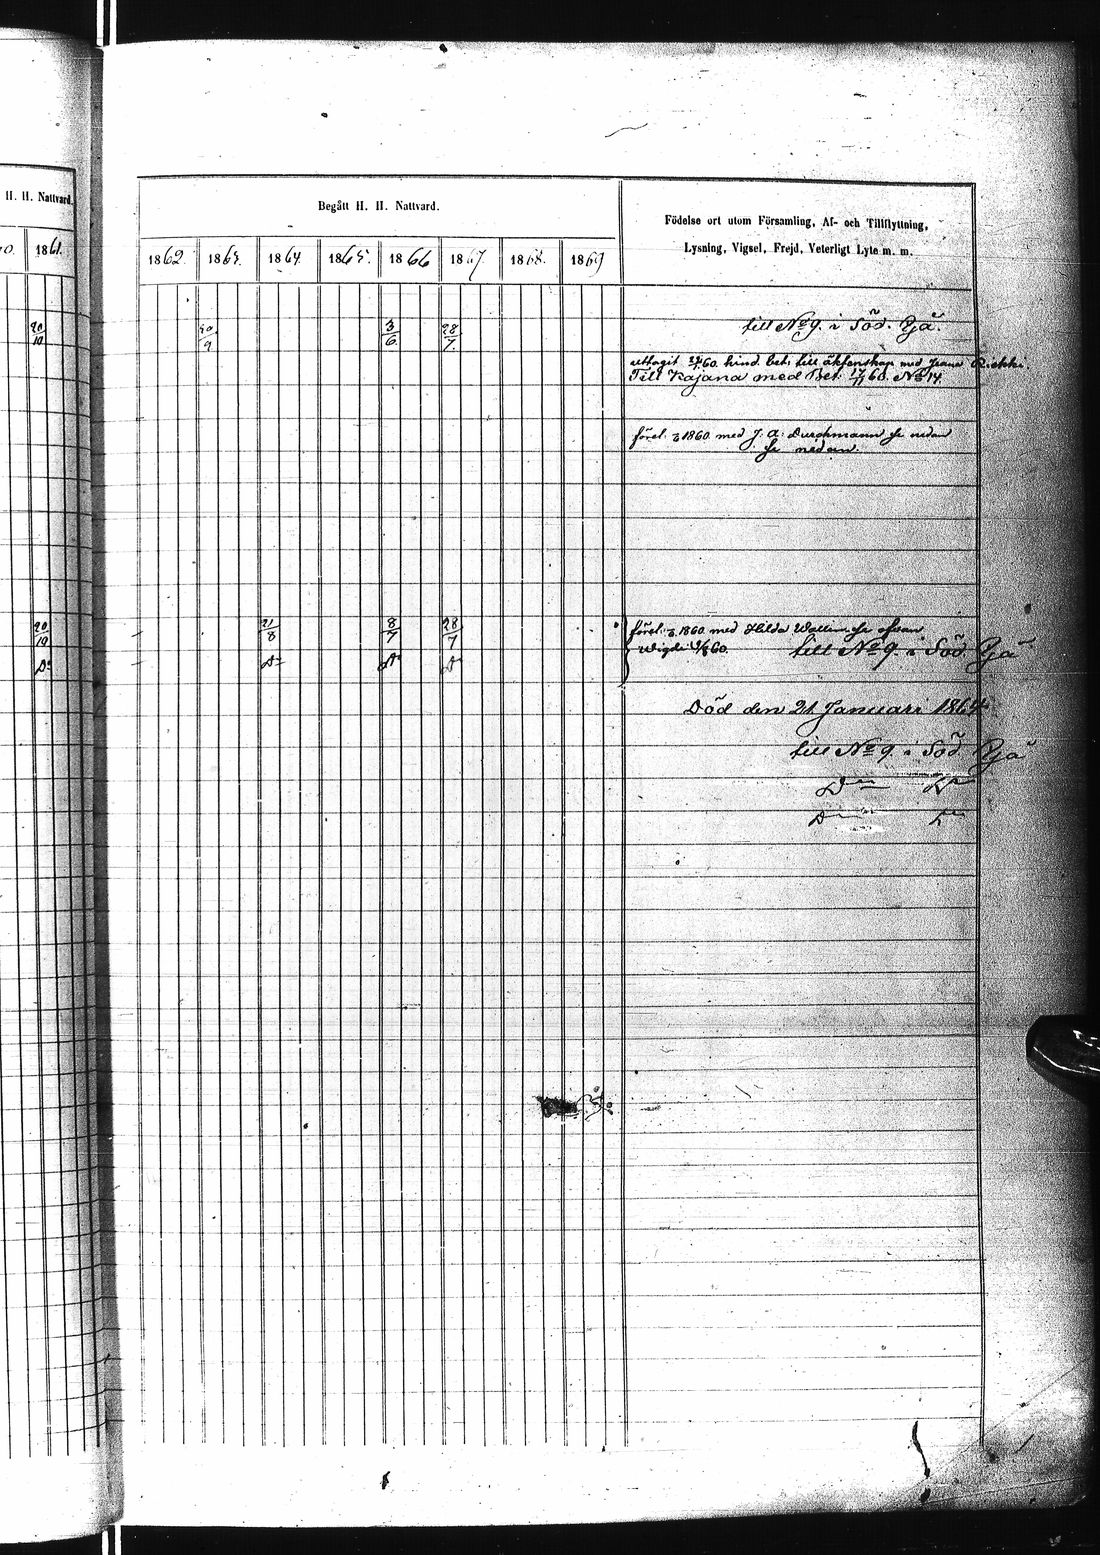 H. H. Nattvard.
1861.
20/10
20/10
Do
Begått H. H. Nattvard.
Födelse ort utom Församling, Af- och Tillflyttning,
Lysning, Vigsel, Frejd, Veterligt Lyte m. m.
1862 1863. 1864. 1865. 1866 1867 1868. 1869
20/9 3/6 28/7. till No 9. i Söd. Yjä.
uttagit 60. hind. bet. till äktenskap med
Till Kajana med Bet. 60. No 14.
förel. 1860 med J. A. Durchmann se nedan
se nedan.
21/8 8/7 28/7 förel. 1860 med Hilda Wallin se ofvan
Do Do Do Wigde 60. till No 9. i Söd. Yjä
Död den 21 Januari 1864
till No 9. i Söd Yjä